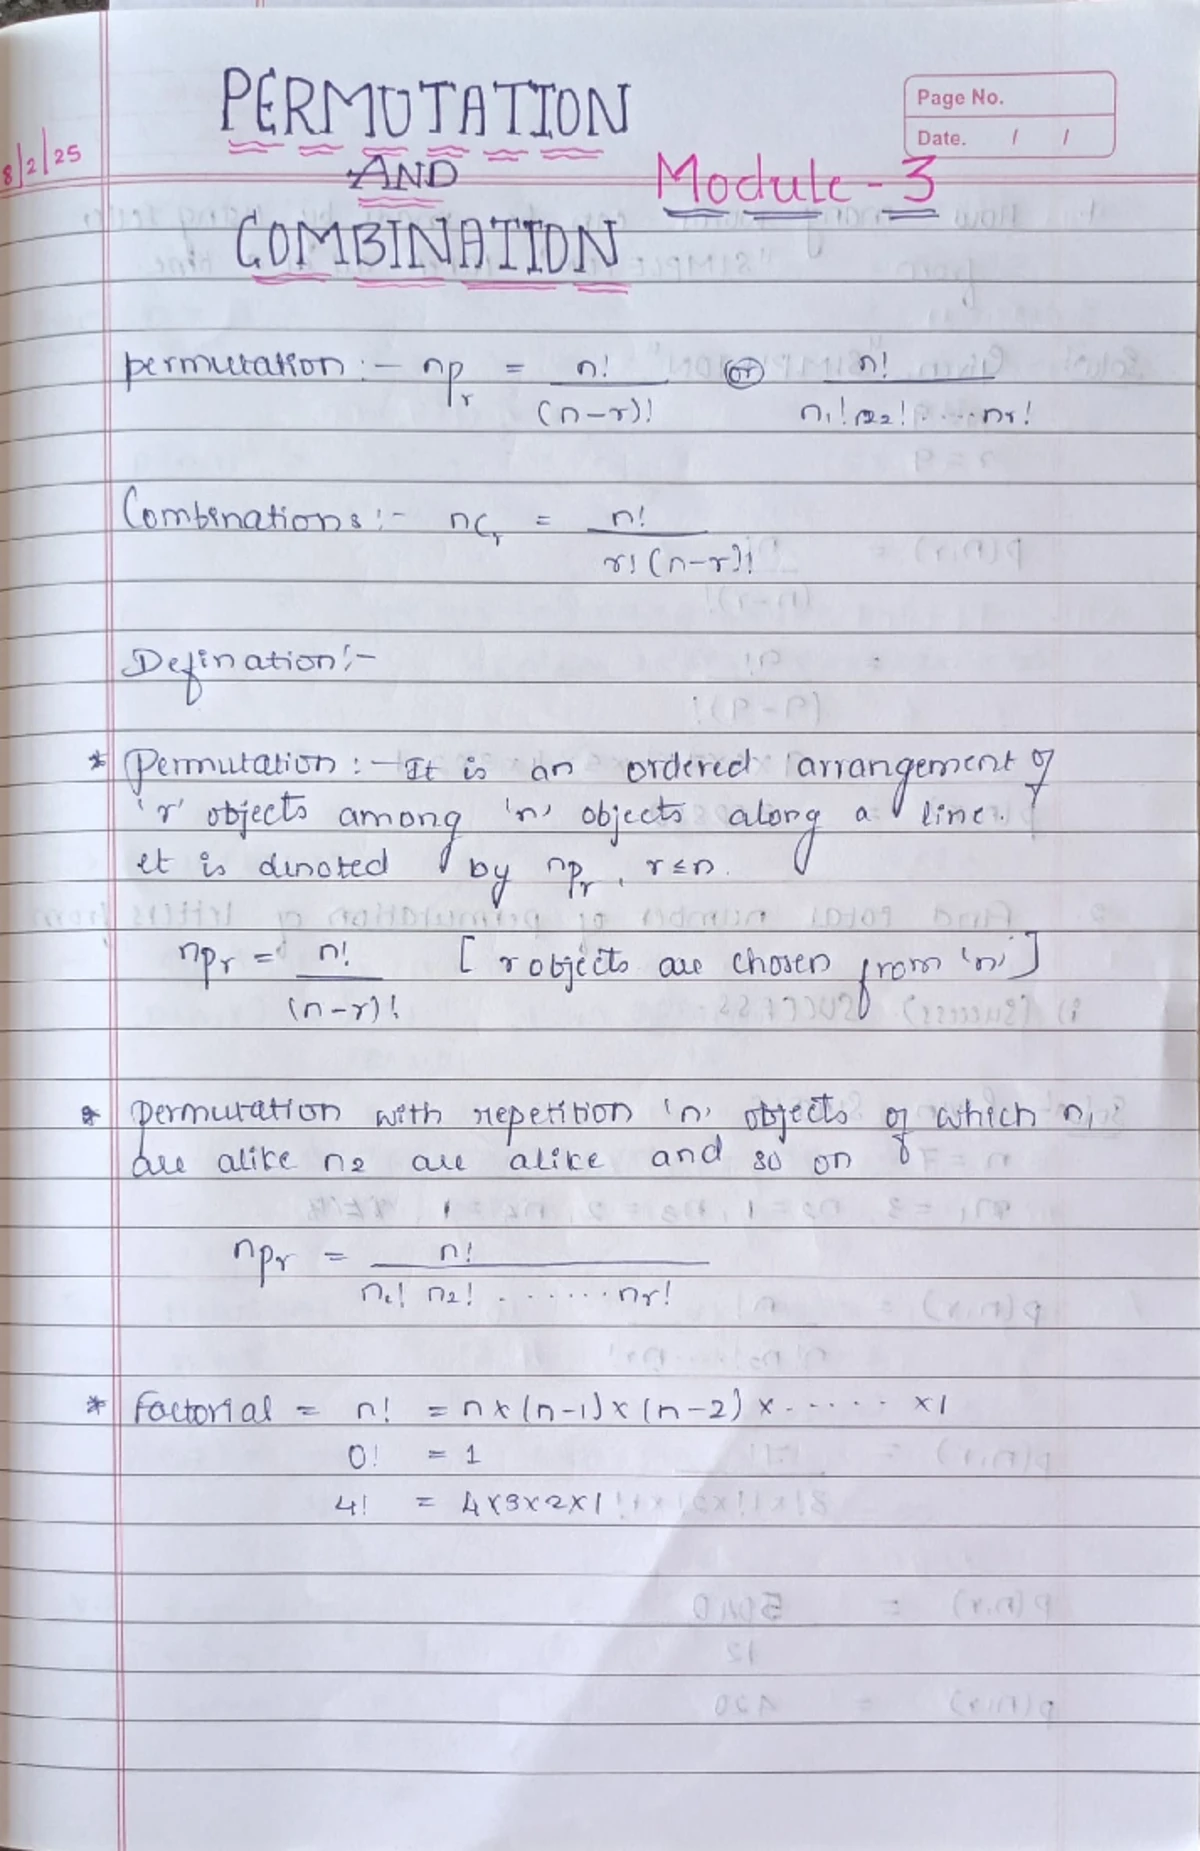 PERMUTATION
Page No.
Date. / /
8/2/25
AND
Module - 3
COMBINATION
permutation :- nPr = n! / (n-r)! (or) n! / n1! n2! ..... nr!
Combinations :- nCr = n! / r! (n-r)!
Defination :-
* Permutation :- It is an ordered arrangement of
'r' objects among 'n' objects along a line.
it is dinoted by nPr , r≤n.
nPr = n! / (n-r)! [ r objects are chosen from 'n' ]
* permutation with repetition 'n' objects of which n1
are alike n2 are alike and so on
nPr = n! / n1! n2! ....... nr!
* Factorial = n! = n x (n-1) x (n-2) x ...... x 1
0! = 1
4! = 4x3x2x1